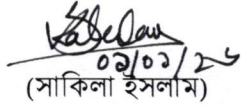 ০১/০১/২৬
(সাকিলা ইসলাম)